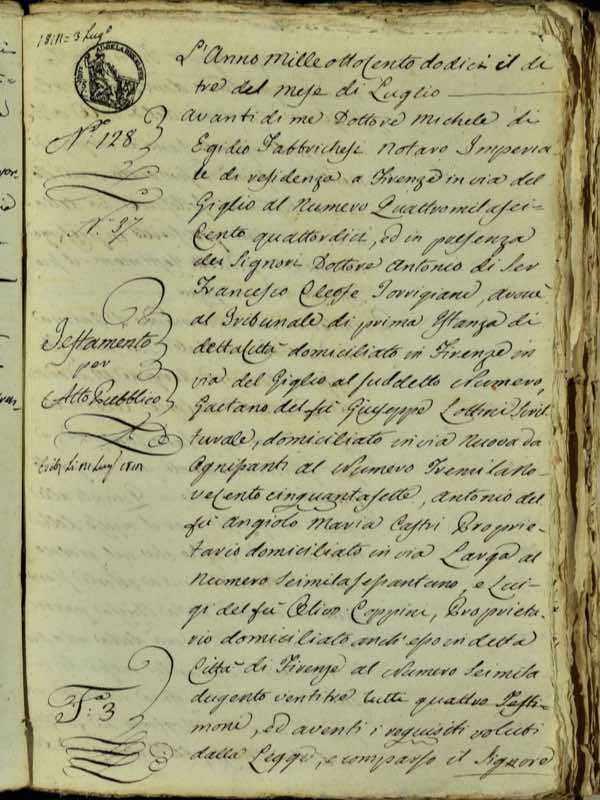 1812 = 3 Lug.o
L'Anno Mille ottocento dodici il di
tre del mese di Luglio
avanti di me Dottore Michele di
Egidio Fabbrichesi Notaro Imperia
le di residenza a Firenze in via del
Giglio al Numero Quattromilasei-
Cento quattordici, ed in presenza
dei Signori Dottore Antonio di Ser
Francesco Cleofe Torrigiani, avouè
al Tribunale di prima Istanza di
detta Città domiciliato in Firenze in
via del Giglio al suddetto Numero,
Gaetano del fù Giuseppe Lottini Scrit
turale, domiciliato in via nuova da
Ognissanti al Numero Tremilano-
vecento cinquantasette, Antonio del
fù Angiolo Maria Castri Proprie-
tario domiciliato in via Larga al
Numero Seimilasessantuno, e Lui-
gi del fù Olivo Coppini, Proprieta-
rio domiciliato anch'esso in detta
Città di Firenze al Numero Seimila
dugento ventitre tutti quattro Testi-
moni, ed aventi i requisiti voluti
dalla Legge, e comparso il Signore
N.o 128
N. 97
Testamento
per
Atto Pubblico
T.a: 3